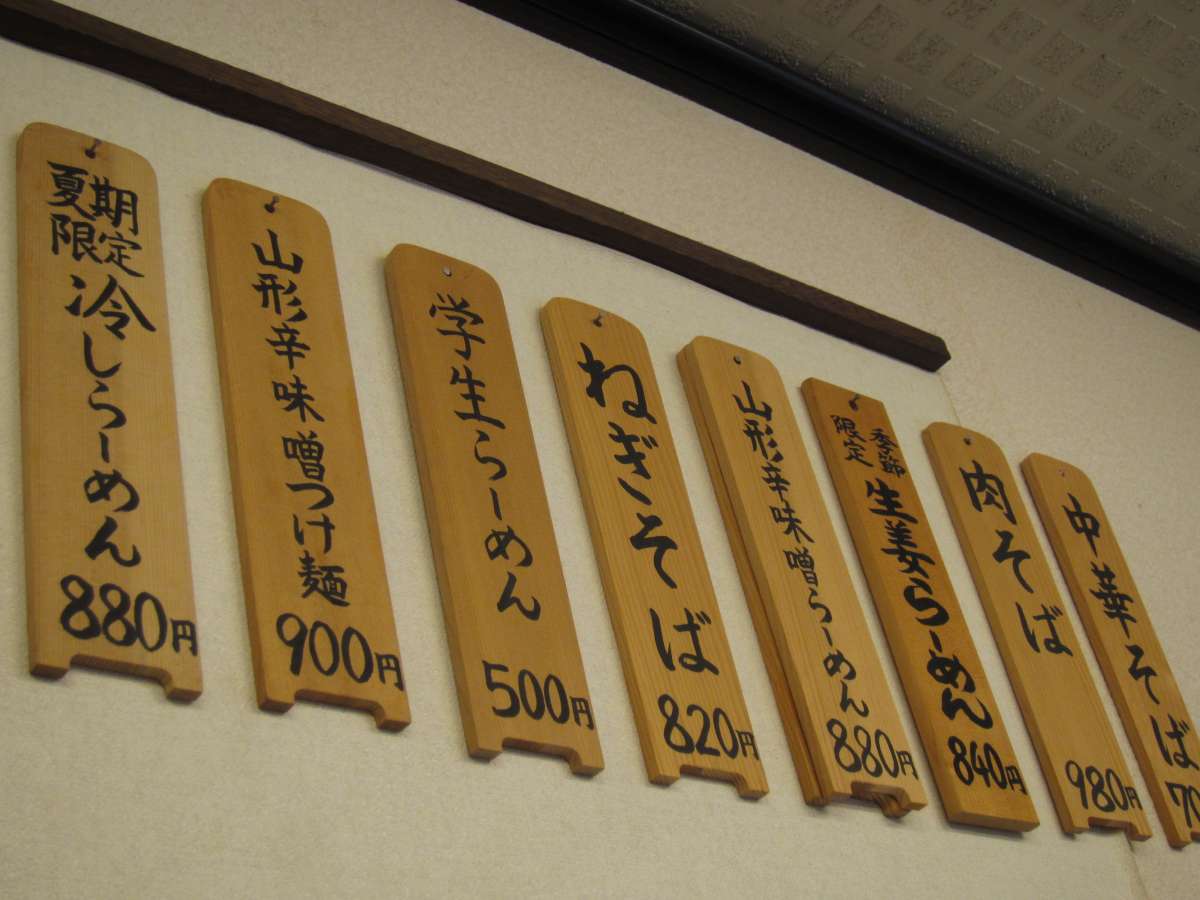 夏期
限定
冷しらーめん
880円
山形辛味噌つけ麺
900円
学生らーめん
500円
ねぎそば
820円
山形辛味噌らーめん
880円
季節
限定
生姜らーめん
840円
肉そば
980円
中華そば
70